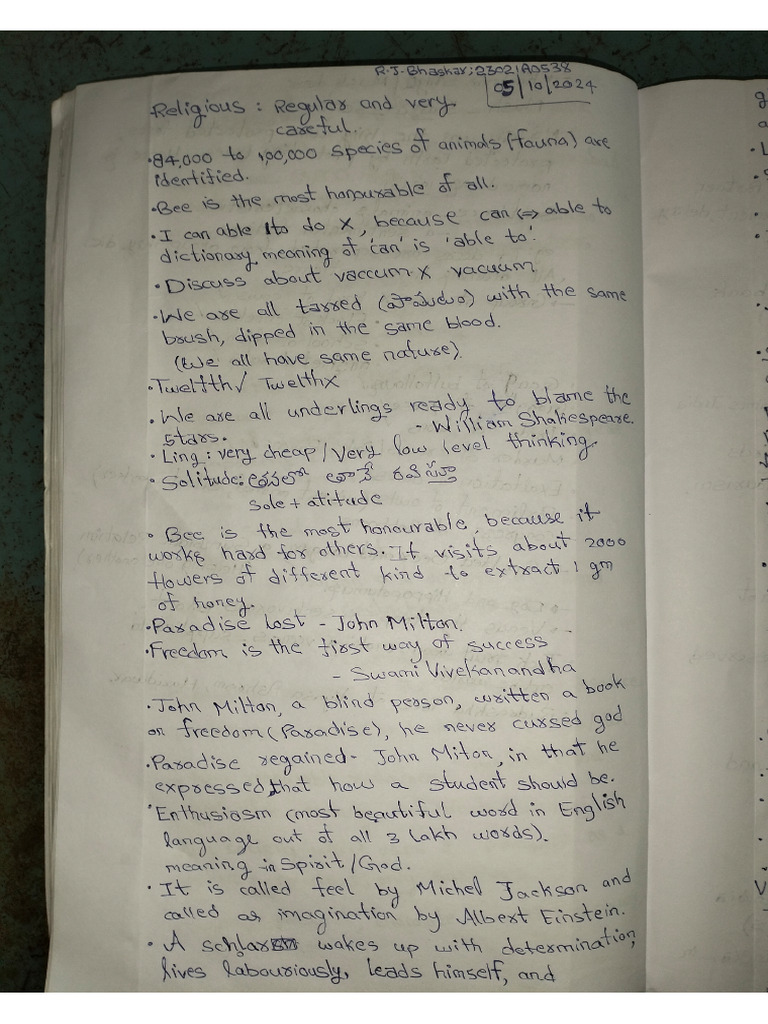 R.J.Bhaskar; 23021A0538
05/10/2024
Religious : Regular and very
careful.
• 84,000 to 1,00,000 species of animals (fauna) are
identified.
• Bee is the most honourable of all.
• I can able to do X, because can ⇔ able to
dictionary meaning of 'can' is 'able to'.
• Discuss about vaccum X vacuum
• We are all tarred (పాముటం) with the same
brush, dipped in the same blood.
(We all have same nature).
• Twelfth✓ Twelth X
• We are all underlings ready to blame the
stars. - William Shakespeare.
• Ling : very cheap / Very low level thinking.
• Solitude: తనలో తానే రమిస్తూ
Sole + atitude
• Bee is the most honourable, because it
works hard for others. It visits about 2000
flowers of different kind to extract 1 gm
of honey.
• Paradise Lost - John Milton.
• Freedom is the first way of success
- Swami Vivekanandha
• John Milton, a blind person, written a book
on freedom (Paradise), he never cursed god
• Paradise regained - John Miton, in that he
expressed that how a student should be.
• Enthusiasm (most beautiful word in English
language out of all 3 Lakh words).
meaning in Spirit/God.
• It is called feel by Michel Jackson and
called as imagination by Albert Einstein.
• A scholar wakes up with determination,
lives labouriously, leads himself, and